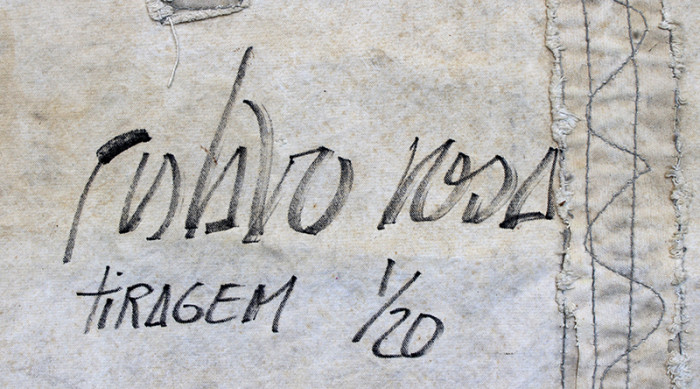 rosa
tiRAGEM 1/20